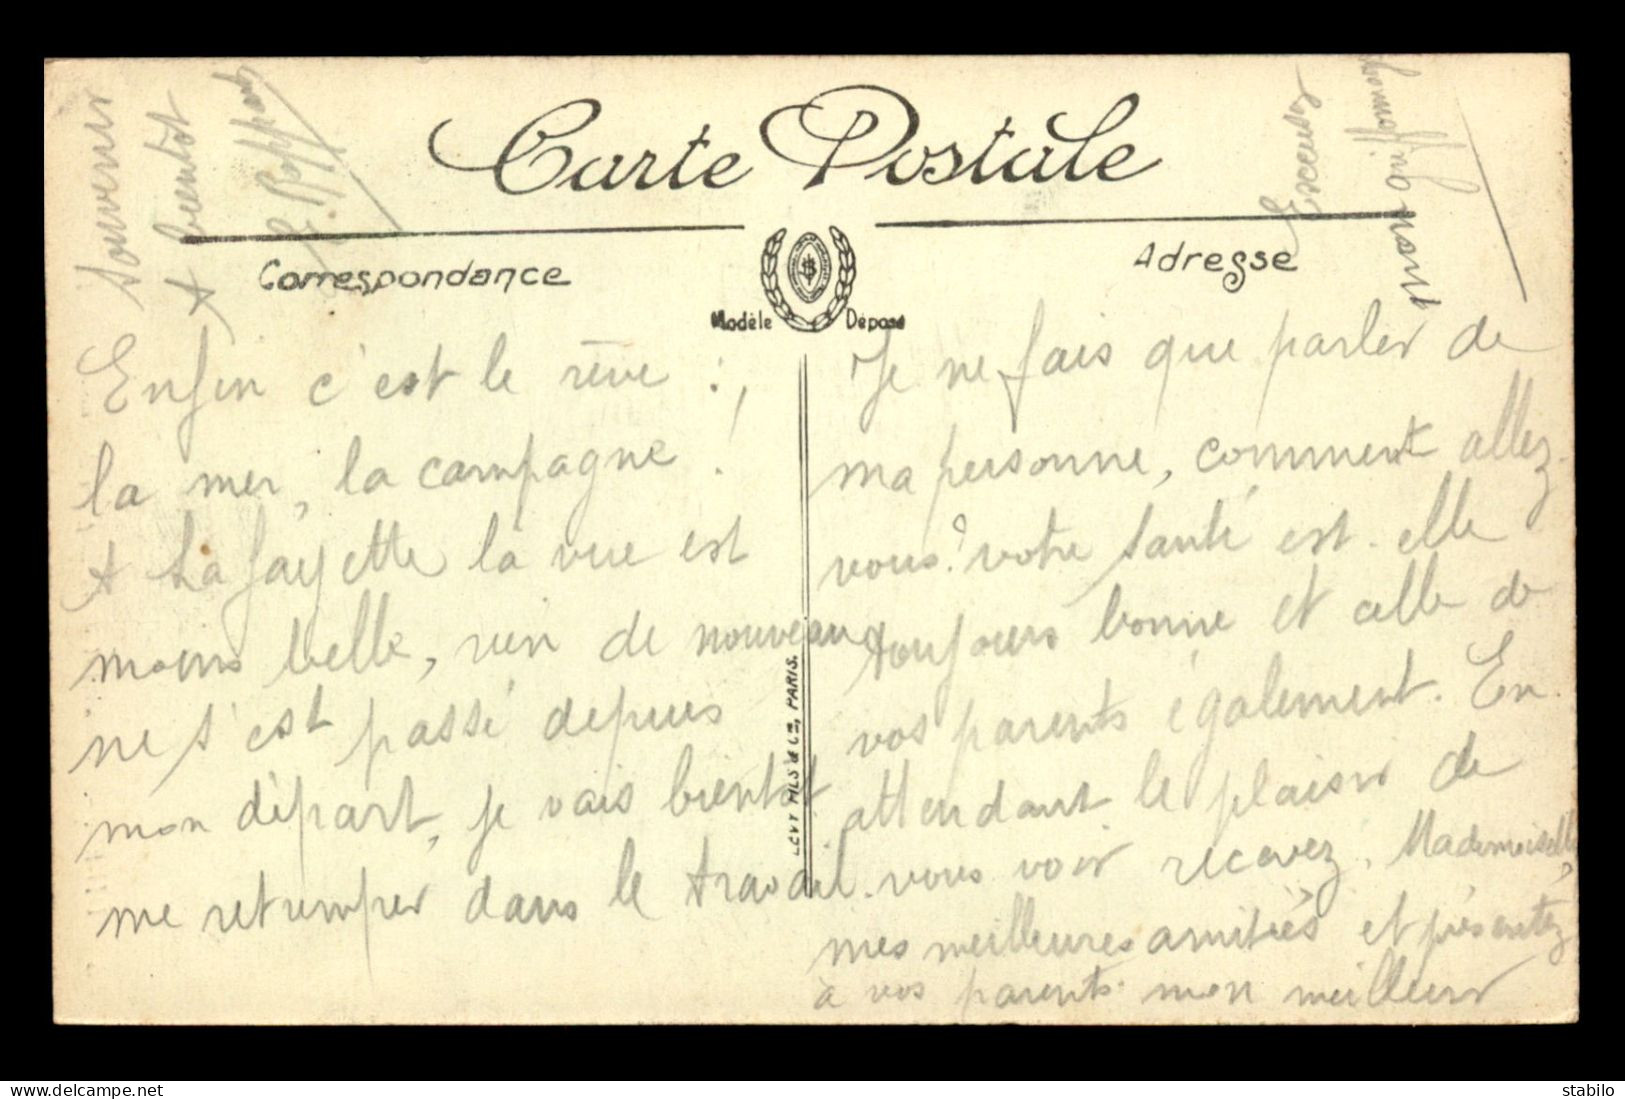 Carte Postale
Correspondance
Adresse
Modèle Déposé
LEVY FILS & Cie, PARIS.
Enfin c'est le rêve :
la mer, la campagne !
A La fayette la vue est
moins belle, rien de nouveau
ne s'est passé depuis
mon départ, je vais bientot
me retremper dans le travail.
Je ne fais que parler de
ma personne, comment allez
vous? votre santé est-elle
toujours bonne et celle de
vos parents également. En
attendant le plaisir de
vous voir recevez, Mademoiselle,
mes meilleures amitiés et présentez
à vos parents mon meilleur
souvenir
A bientôt
Excusez
mon